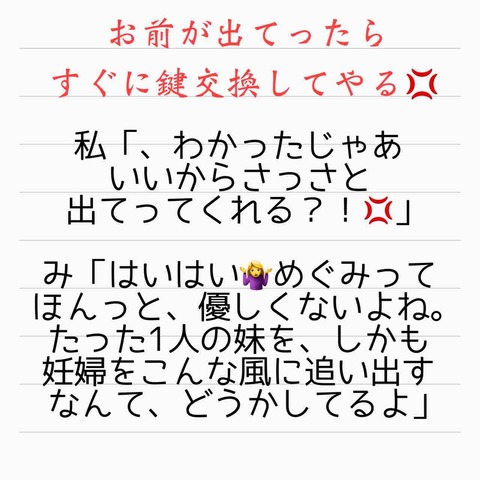 お前が出てったら
すぐに鍵交換してやる💢
私「、わかったじゃあ
いいからさっさと
出てってくれる？！💢」
み「はいはい🤷‍♀️めぐみって
ほんっと、優しくないよね。
たった1人の妹を、しかも
妊婦をこんな風に追い出す
なんて、どうかしてるよ」